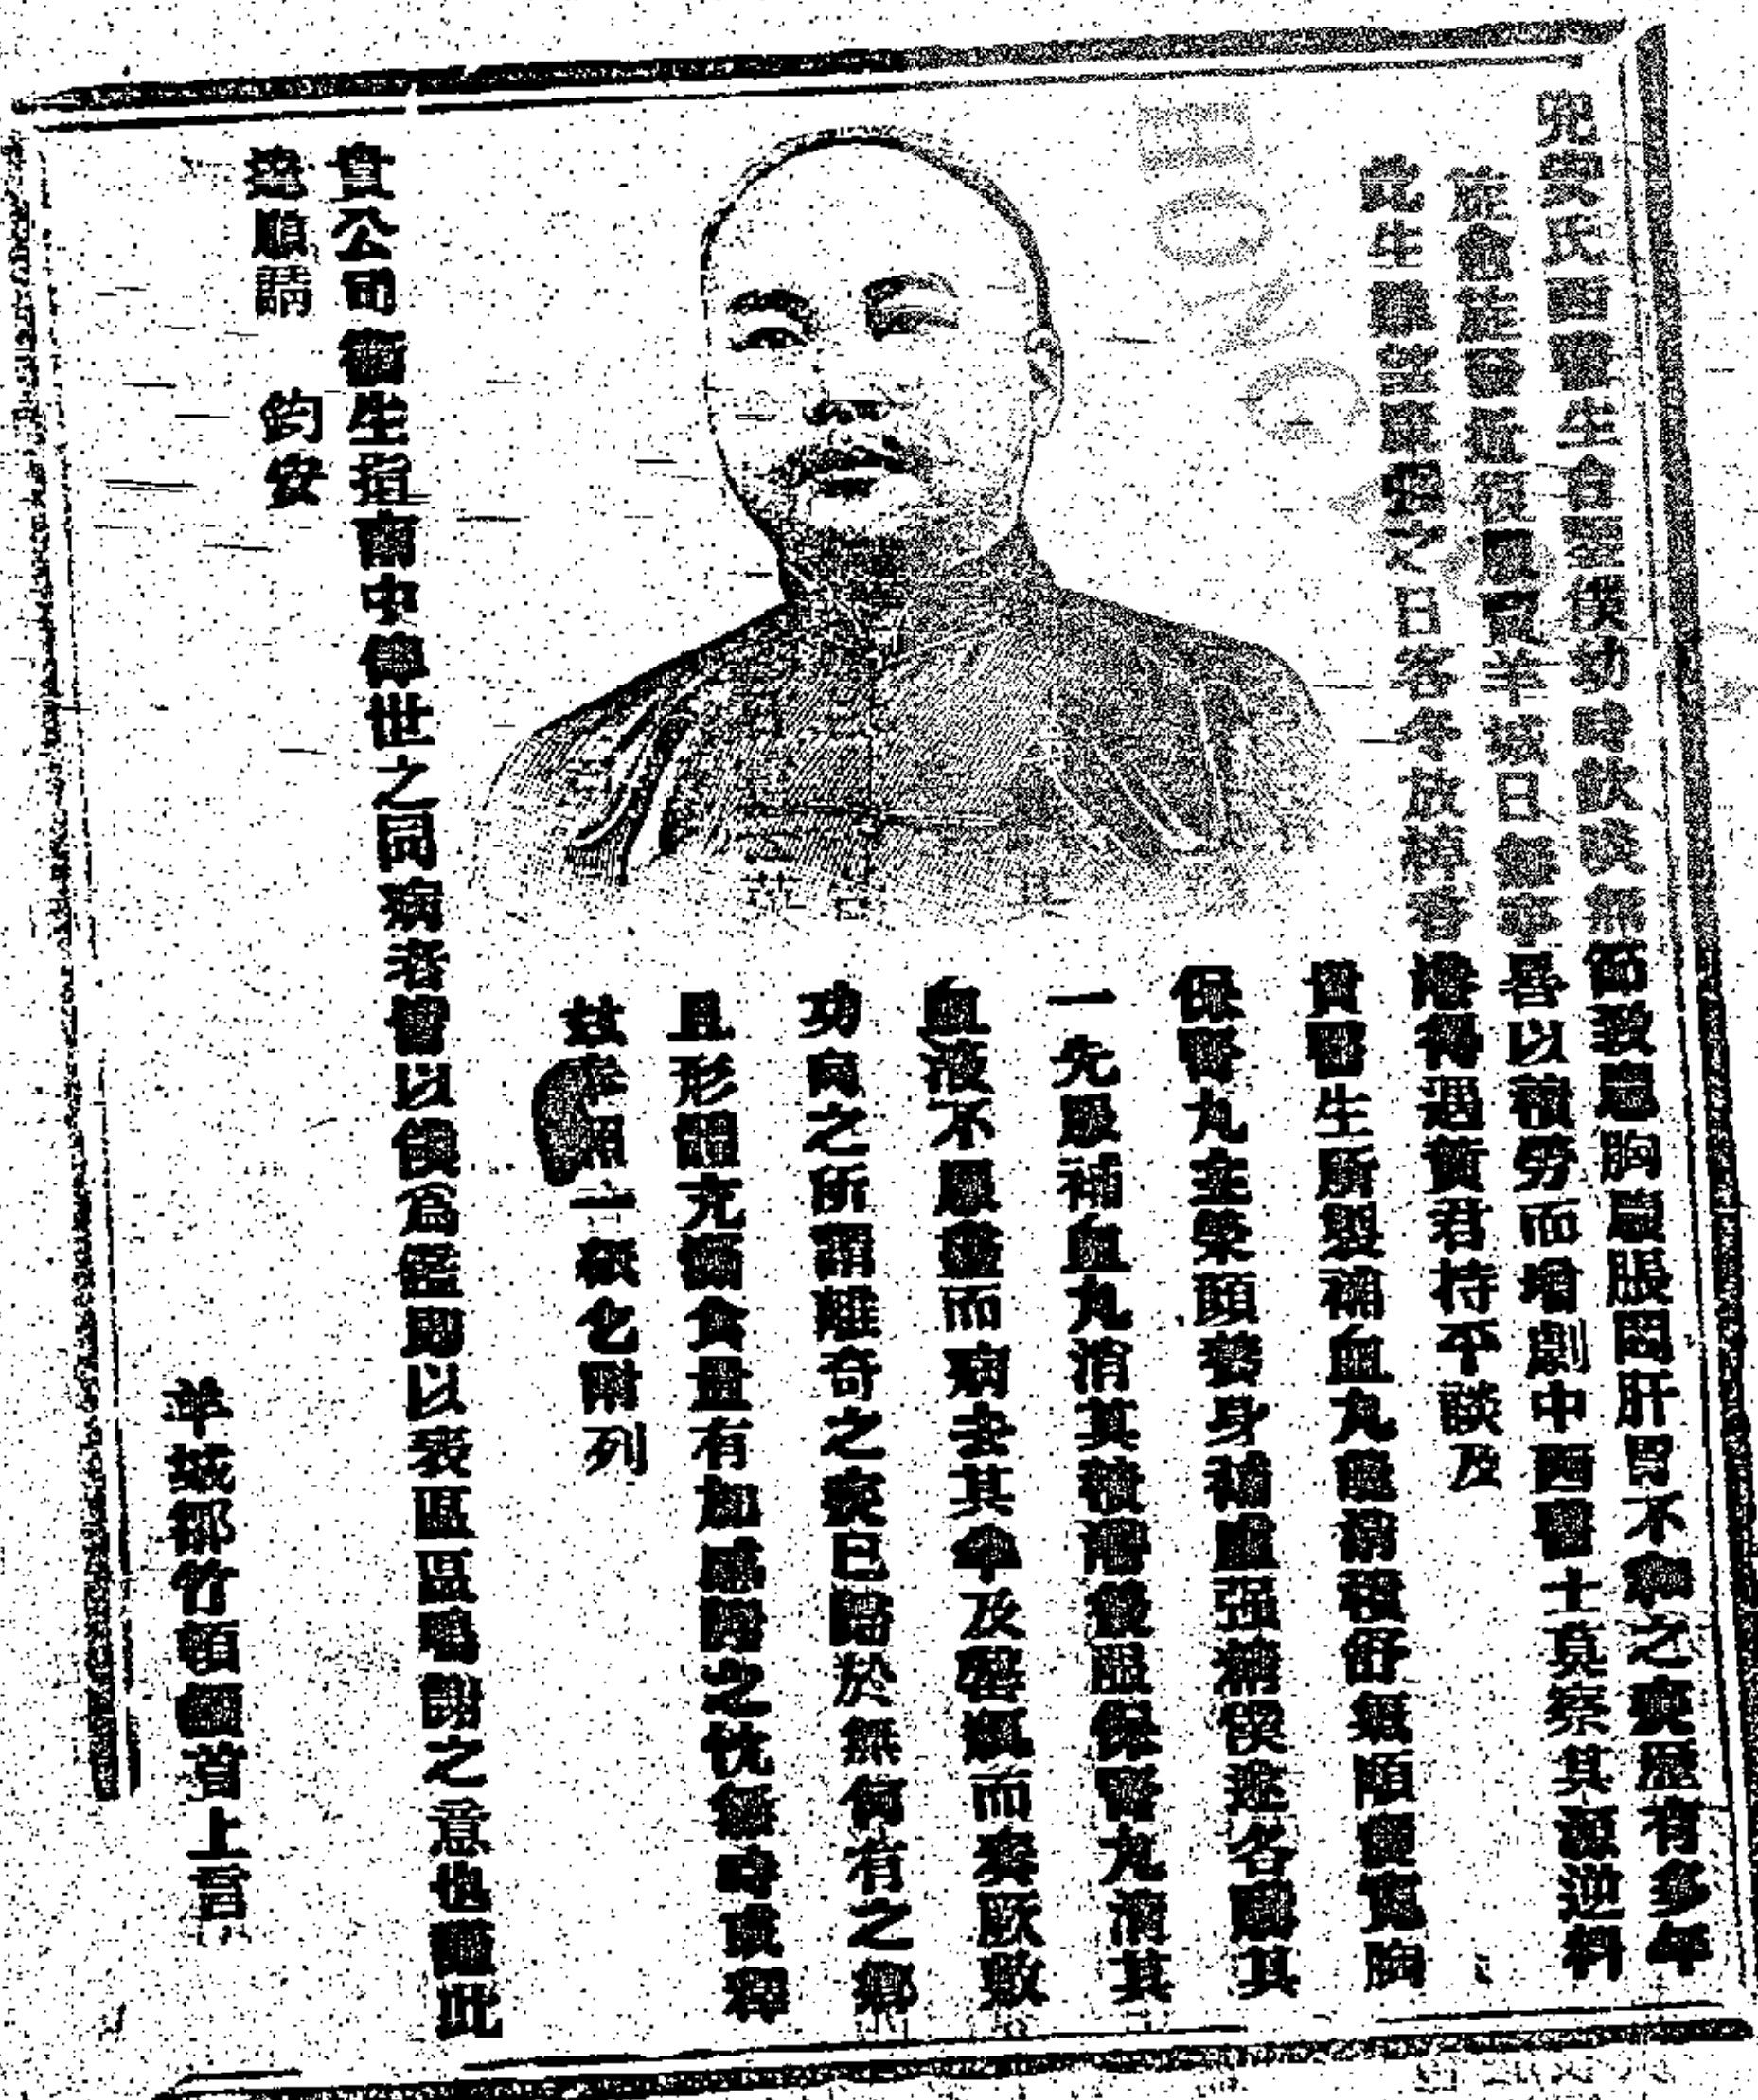 兜安氏西醫生台鑒僕幼時飲啖無節致患胸膈脹悶肝胃不和之疾歷有多年
旋愈旋發近復服賈羊城日無寧晷以積勞而增劇中西醫士莫察其源逆料
此生難望却之日客冬放棹香港得遇黃君持平談及
貴醫生所製補血丸能消積舒氣順氣寬胸
保腎丸主榮顏養身補虛强補迭名購其
一先服補血丸消其積滯後服保腎丸清其
血液不愿盡而病去其半及罄瓶而奏厥效
功向之所謂離奇之疾已歸於無何有之鄉
且形體充備食量有加感謝之忱無時或釋
茲奉照一紙乞附列
貴公司衛生指南中俾世之同病者皆以僕爲鑑即以表區區鳴謝之意也耑此
達順請 鈞安
羊城鄒竹頓首上言